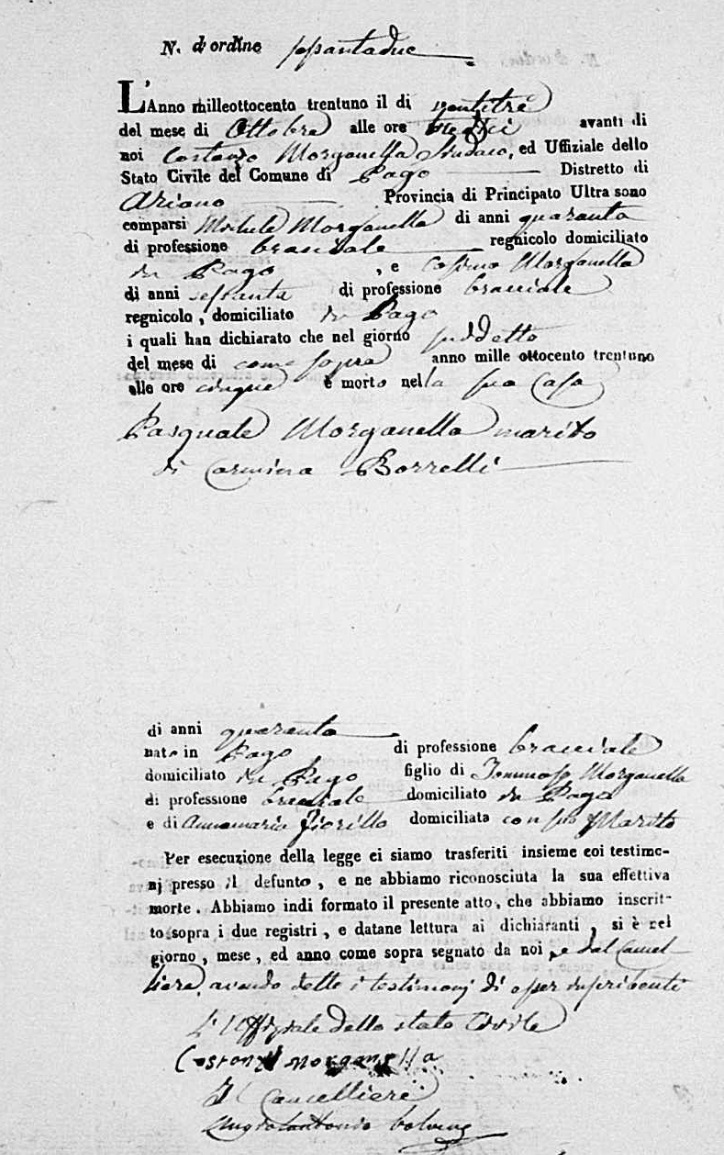 N. d'ordine sessantadue
L'Anno milleottocento trentuno il di ventitre
del mese di Ottobre alle ore tredici avanti di
noi Costanzo Morganella Sindaco, ed Uffiziale dello
Stato Civile del Comune di Pago Distretto di
Ariano Provincia di Principato Ultra sono
comparsi Michele Morganella di anni quaranta
di professione bracciale regnicolo domiciliato
in Pago, e Cosimo Morganella
di anni sessanta di professione bracciale
regnicolo, domiciliato in Pago
i quali han dichiarato che nel giorno suddetto
del mese di come sopra anno mille ottocento trentuno
alle ore cinque è morto nella sua Casa
Pasquale Morganella marito
di Carmina Borrelli
di anni quaranta
nato in Pago di professione bracciale
domiciliato in Pago figlio di Tommaso Morganella
di professione bracciale domiciliato in Pago
e di Annamaria Fiorillo domiciliata con suo Marito
Per esecuzione della legge ci siamo trasferiti insieme coi testimo-
nj presso il defunto, e ne abbiamo riconosciuta la sua effettiva
morte. Abbiamo indi formato il presente atto, che abbiamo inscrit-
to sopra i due registri, e datane lettura ai dichiaranti, si è nel
giorno, mese, ed anno come sopra segnato da noi, e dal Cancel-
liere, avendo detto i testimonj di esser
L'Uffiziale dello stato Civile
Costanzo Morganella
Il Cancelliere